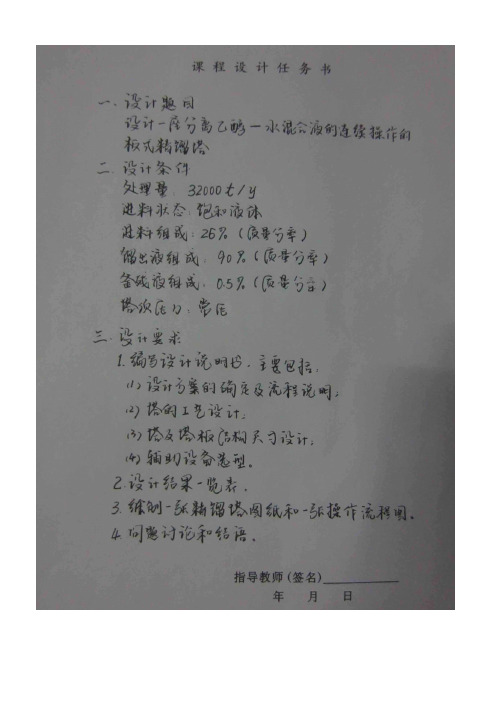 课程设计任务书
一. 设计题目
设计一座分离乙醇—水混合液的连续操作的
板式精馏塔
二. 设计条件
处理量: 32000 t/y
进料状态: 饱和液体
进料组成: 26% (质量分率)
馏出液组成: 90% (质量分率)
釜残液组成: 0.5% (质量分率)
塔顶压力: 常压
三. 设计要求
1. 编写设计说明书. 主要包括:
(1) 设计方案的确定及流程说明;
(2) 塔的工艺设计;
(3) 塔及塔板结构尺寸设计;
(4) 辅助设备选型。
2. 设计结果一览表.
3. 绘制一张精馏塔图纸和一张操作流程图。
4. 问题讨论和结语。
指导教师(签名)
年 月 日